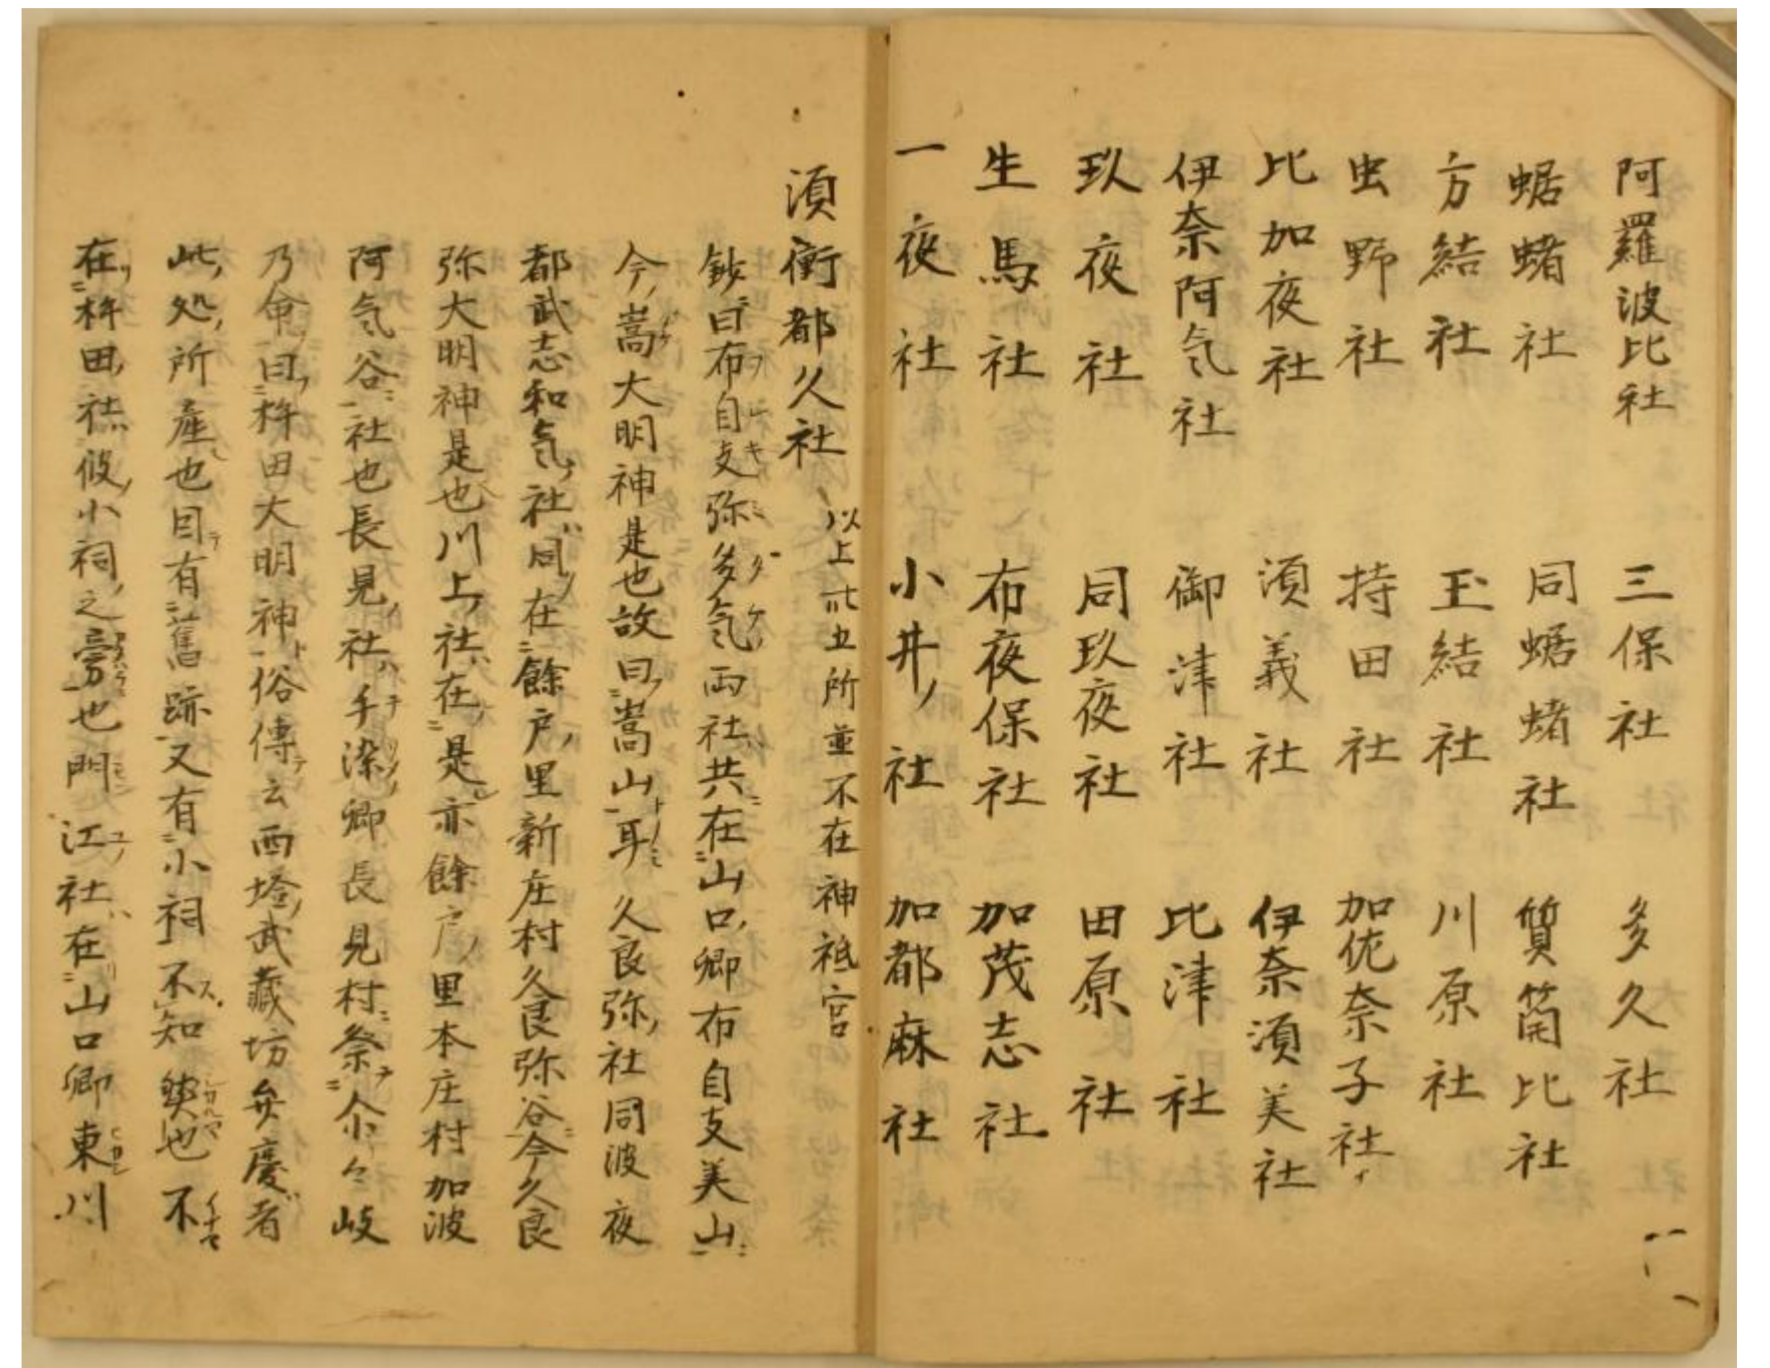 阿羅波比社　三保社　多久社
蜛蝫社　同蜛蝫社　質簡比社
方結社　玉結社　川原社
虫野社　持田社　加佐奈子社
比加夜社　須義社　伊奈須美社
伊奈阿気社　御津社　比津社
玖夜社　同玖夜社　田原社
生馬社　布夜保社　加茂志社
一夜社　小井社　加都麻社
須衛都久社　以上卅五所並不在神祇官
鈔曰布自支弥多気両社共在山口郷布自支美山
今嵩大明神是也故曰嵩山耳久良弥社同波夜
都武志和気社同在餘戸里新庄村久良弥谷今久良
弥大明神是也川上社在是亦餘戸里本庄村加波
阿気谷社也長見社手染郷長見村祭尒々岐
乃命曰杵田大明神俗傳云西塔武蔵坊弁慶者
此処所産也因有舊跡又有小祠不知然也不
在杵田社傍小祠之旁也門江社在山口郷東川